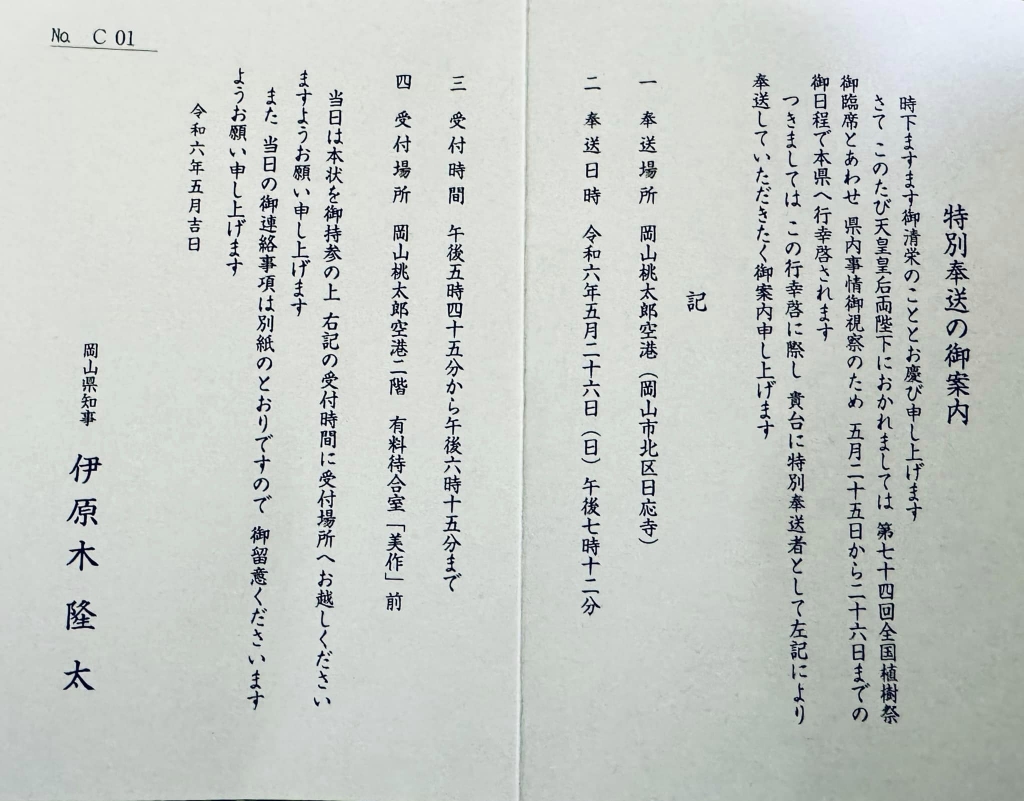 特別奉送の御案内
時下ますます御清栄のこととお慶び申し上げます
さて このたび天皇皇后両陛下におかれましては 第七十四回全国植樹祭
御臨席とあわせ 県内事情御視察のため 五月二十五日から二十六日までの
御日程で本県へ行幸啓されます
つきましては この行幸啓に際し 貴台に特別奉送者として左記により
奉送していただきたく御案内申し上げます
記
一 奉送場所 岡山桃太郎空港（岡山市北区日応寺）
二 奉送日時 令和六年五月二十六日（日）午後七時十二分
三 受付時間 午後五時四十五分から午後六時十五分まで
四 受付場所 岡山桃太郎空港二階 有料待合室「美作」前
当日は本状を御持参の上 右記の受付時間に受付場所へお越しください
ますようお願い申し上げます
また 当日の御連絡事項は別紙のとおりですので 御留意くださいます
ようお願い申し上げます
令和六年五月吉日
岡山県知事 伊原木 隆太
No. C 01